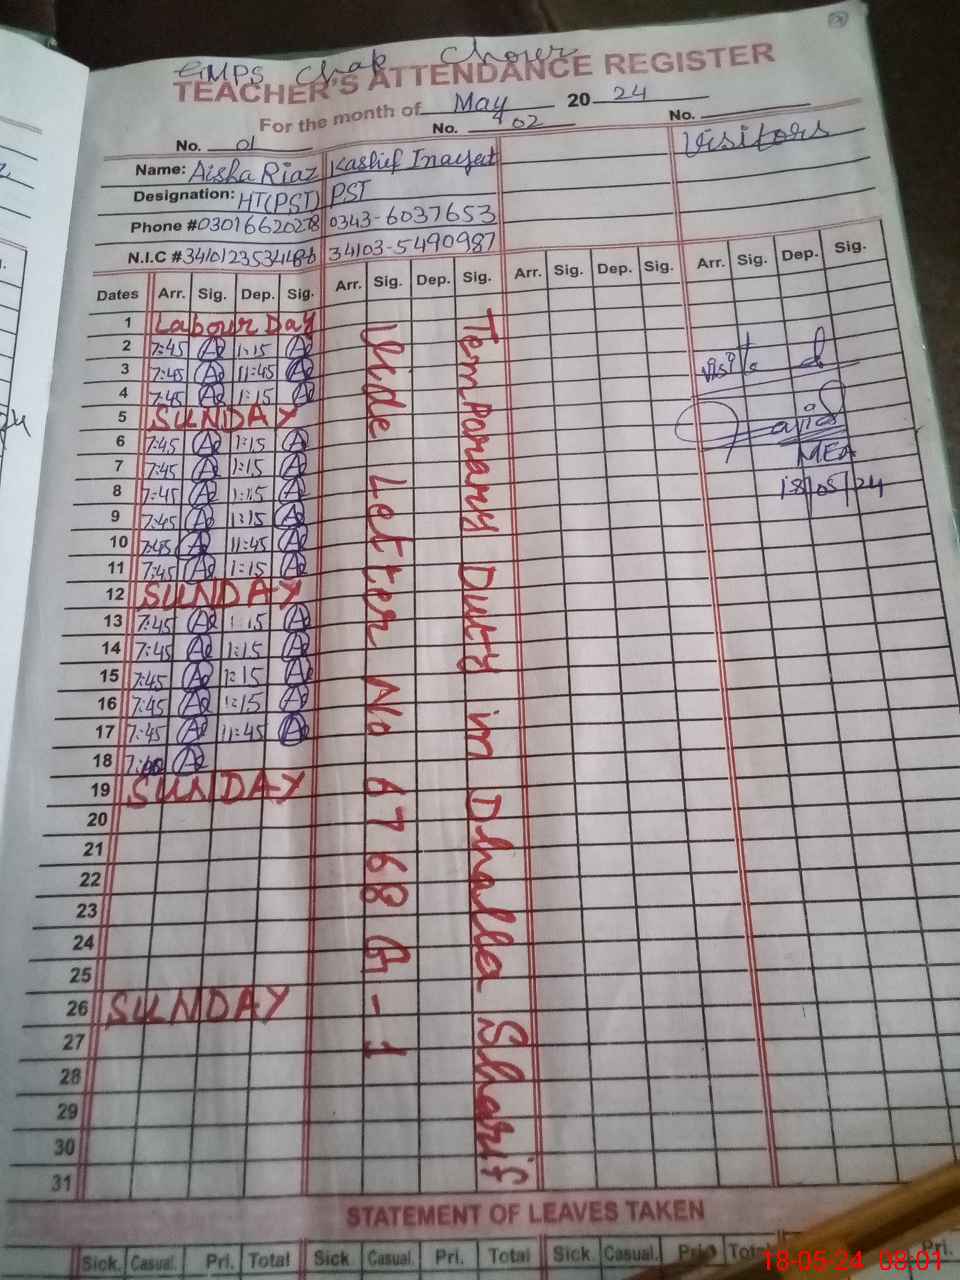 GMPS Chak Chour
TEACHER'S ATTENDANCE REGISTER
For the month of May 20 24
No. 01 No. 02 No.
Name: Aisha Riaz Kashif Inayat Visitors
Designation: HT(PST) PST
Phone #03016620278 0343-6037653
N.I.C #3410123534486 34103-5490987
Dates Arr. Sig. Dep. Sig. Arr. Sig. Dep. Sig. Arr. Sig. Dep. Sig. Arr. Sig. Dep. Sig.
1 Labour Day
2 7:45 1:15
3 7:45 11:45
4 7:45 1:15
5 SUNDAY
6 7:45 1:15
7 7:45 1:15
8 7:45 1:15
9 7:45 1:15
10 7:45 11:45
11 7:45 1:15
12 SUNDAY
13 7:45 1:15
14 7:45 1:15
15 7:45 1:15
16 7:45 1:15
17 7:45 11:45
18
19 SUNDAY
20
21
22
23
24
25
26 SUNDAY
27
28
29
30
31
Vide Letter No 6768 G-1
Temporary Duty in Dhalla Sharif
MEA
18/05/24
STATEMENT OF LEAVES TAKEN
Sick. Casual. Pri. Total Sick Casual. Pri. Total Sick. Casual. Pri. Total Pri.
18-05-24 08:01